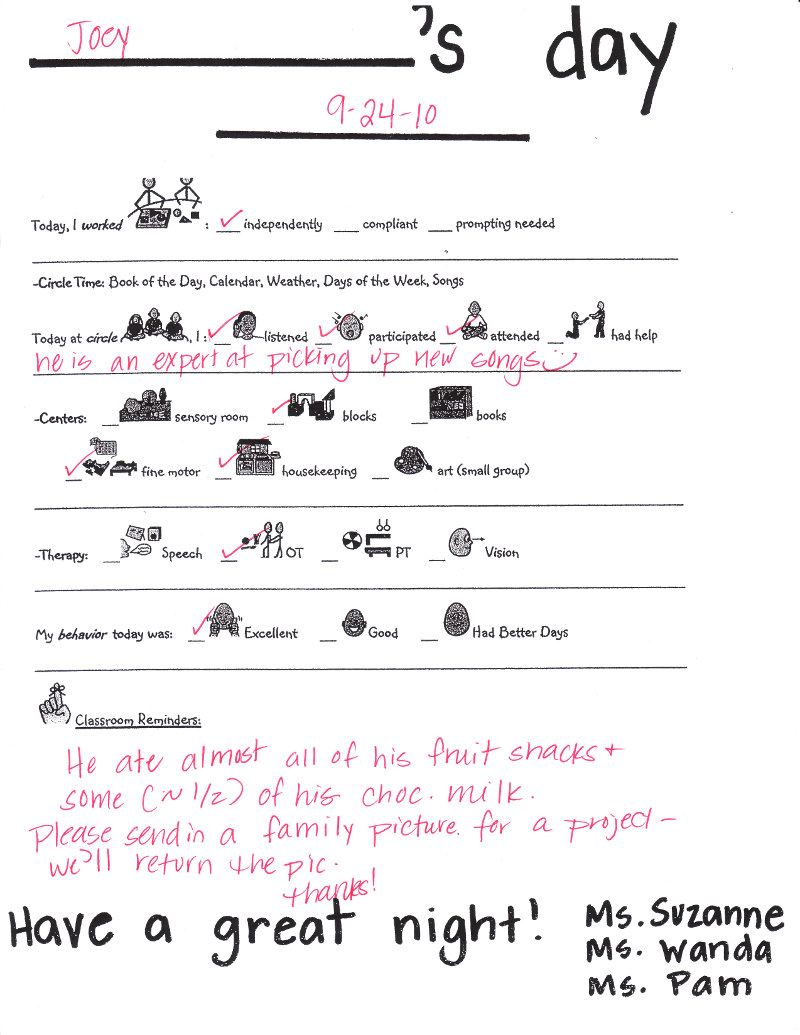 Joey's day
9-24-10
Today, I worked : ✓ independently ___ compliant ___ prompting needed
-Circle Time: Book of the Day, Calendar, Weather, Days of the Week, Songs
Today at circle, I : ✓ listened ✓ participated ✓ attended __ had help
he is an expert at picking up new songs☺
-Centers: __ sensory room ✓ blocks __ books
✓ fine motor ✓ housekeeping __ art (small group)
-Therapy: __ Speech ✓ OT __ PT __ Vision
My behavior today was: ✓ Excellent __ Good __ Had Better Days
Classroom Reminders:
He ate almost all of his fruit snacks +
some (~1/2) of his choc. milk.
Please send in a family picture. for a project -
we'll return the pic.
thanks!
Have a great night!
Ms. Suzanne
Ms. Wanda
Ms. Pam